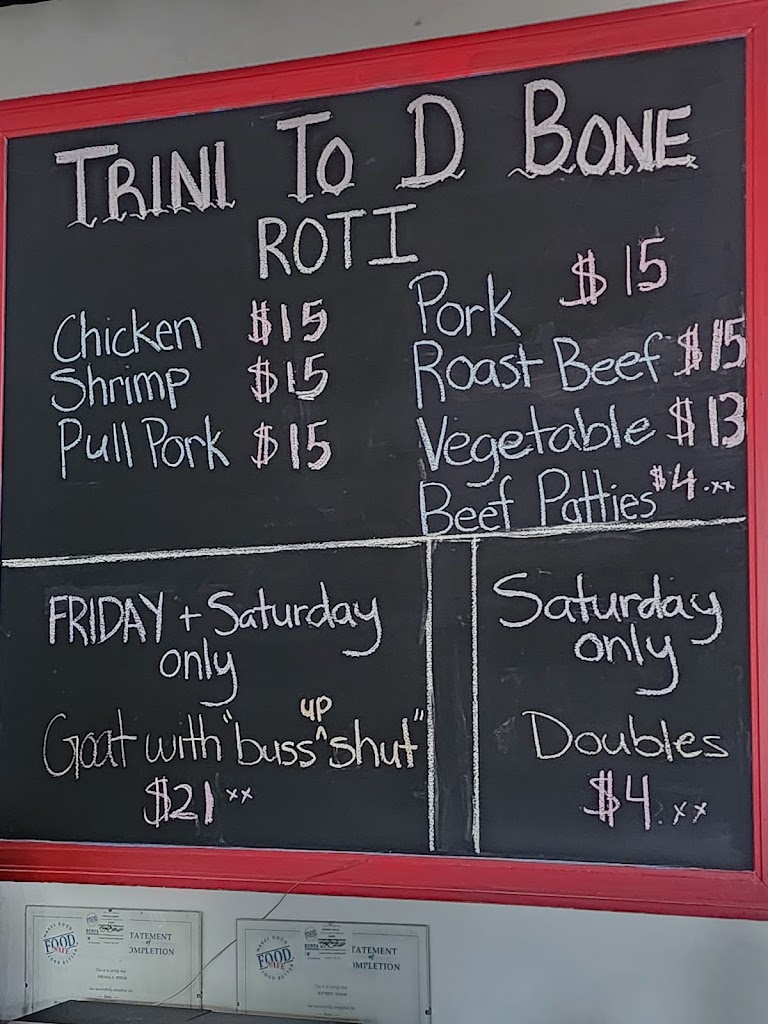 TRINI TO D BONE
ROTI
Chicken $15
Shrimp $15
Pull Pork $15
Pork $15
Roast Beef $15
Vegetable $13
Beef Patties $4.xx
FRIDAY + Saturday
only
Goat with "buss up shut"
$21 xx
Saturday
only
Doubles
$4.xx
FOOD
SAFE
TATEMENT
of
OMPLETION
FOOD
SAFE
TATEMENT
of
OMPLETION